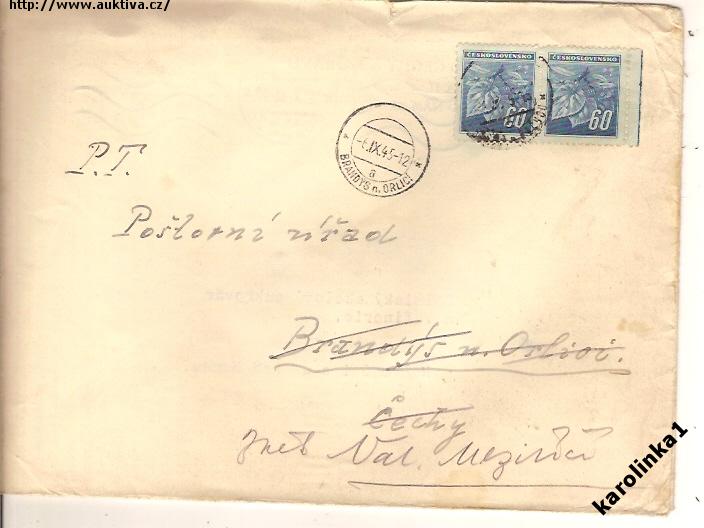 http://www.auktiva.cz/
ČESKOSLOVENSKO ČESKOSLOVENSKO
60 60
-6.IX.45-12
a
BRANDÝS n. ORLICÍ
P.T.
Poštovní úřad
Brandýs n. Orlicí.
Čechy
Val. Meziříčí
karolinka1